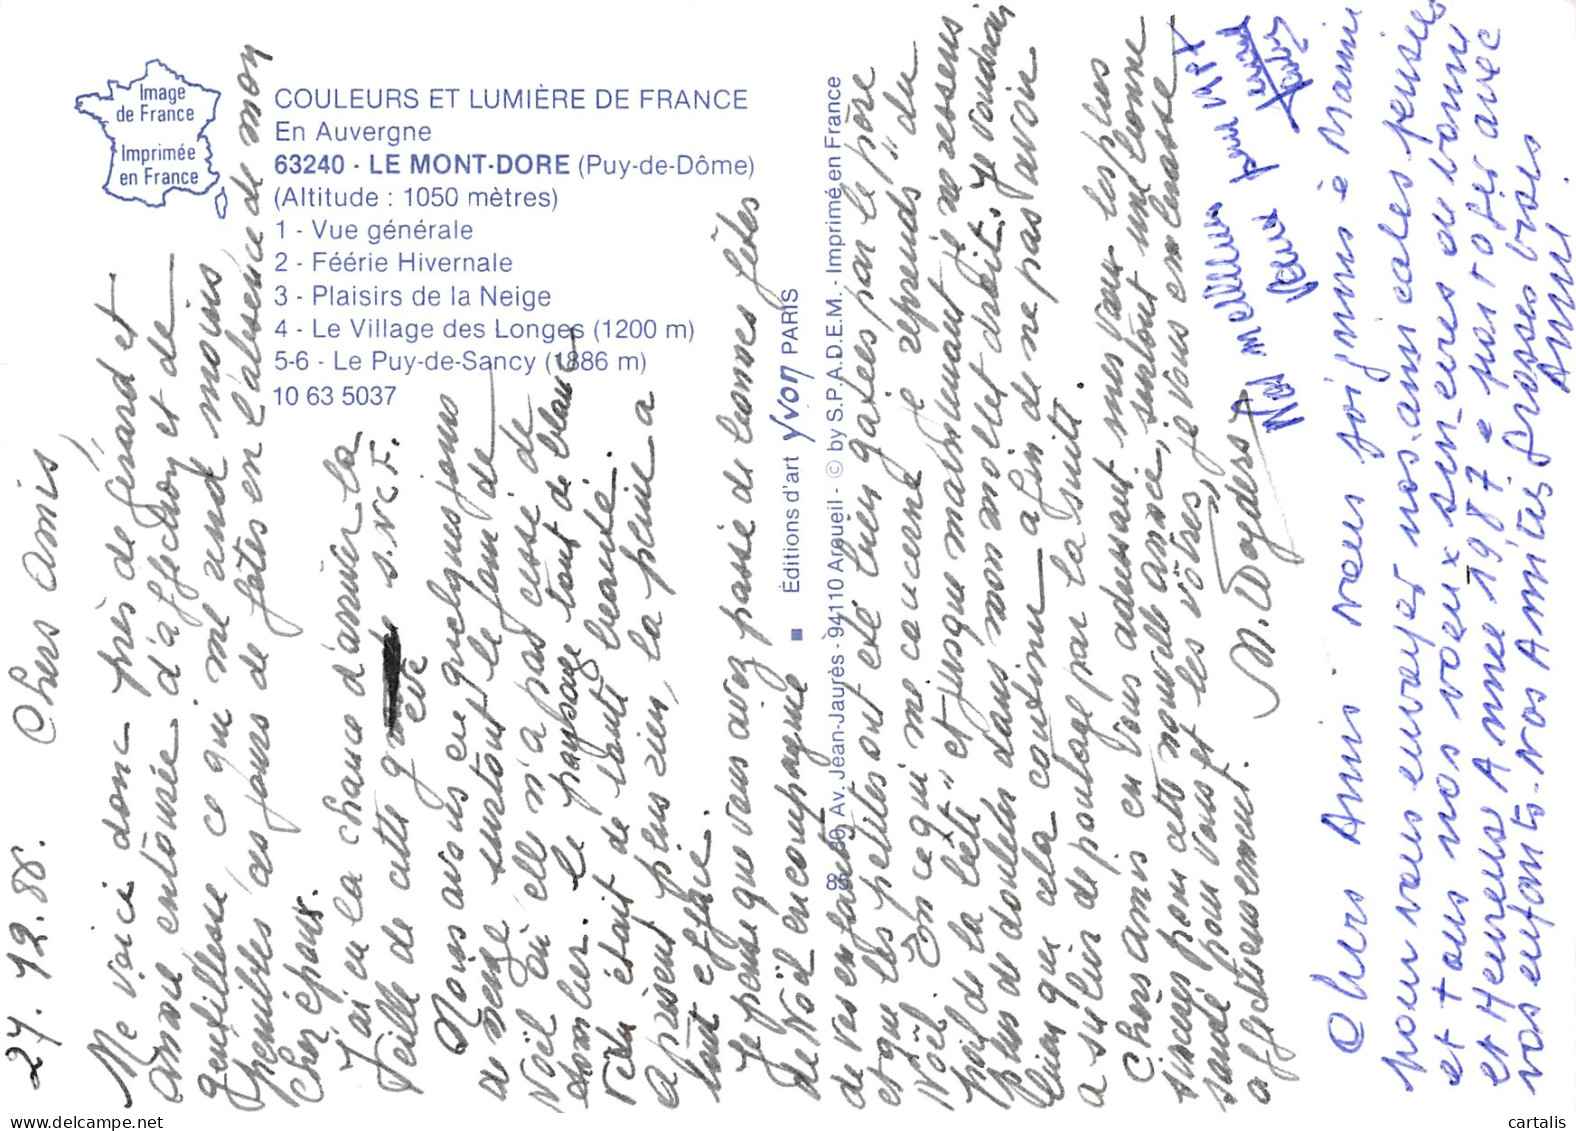 Image
de France
Imprimée
en France
COULEURS ET LUMIÈRE DE FRANCE
En Auvergne
63240 - LE MONT-DORE (Puy-de-Dôme)
(Altitude : 1050 mètres)
1 - Vue générale
2 - Féérie Hivernale
3 - Plaisirs de la Neige
4 - Le Village des Longes (1200 m)
5-6 - Le Puy-de-Sancy (1886 m)
10 63 5037
Éditions d'art yvon PARIS
Av. Jean-Jaurès - 94110 Arcueil - © by S.P.A.D.E.M. - Imprimé en France
27. 12. 86.
Chers Amis,
Me voici donc près de Gérard et
Annie entourée d'affection et de
gentillesse, ce qui me rend moins
pénibles ces jours de fêtes en l'absence de mon
cher époux.
J'ai eu la chance d'arriver la
veille de cette grève S.N.C.F.
Nous avons eu quelques jours
de neige surtout le jour de
Noël où elle n'a pas cessé de
tomber. Le paysage tout de blanc
vêtu était de toute beauté.
A présent plus rien, la pluie a
tout effacé.
Je pense que vous avez passé de bonnes fêtes
de Noël en compagnie
de vos enfants
et que les petites ont été bien gâtées par le père
Noël. En ce qui me concerne je reprends "du
poil de la bête" et jusque maintenant je ne ressens
plus de douleurs dans mon mollet droit. Je voudrais
bien que cela continue afin de ne pas avoir
à subir de pontage par la suite.
Chers amis en vous adressant mes vœux les plus
sincères pour cette nouvelle année, surtout une bonne
santé pour vous et les vôtres, je vous embrasse
affectueusement.
Chers Amis nous joignons à Mamie
pour vous envoyer nos amicales pensées
et tous nos voeux sincères de bonne
et Heureuse Année 1987 à partager avec
vos enfants. Nos Amitiés grosses bises
Annie
cartalis